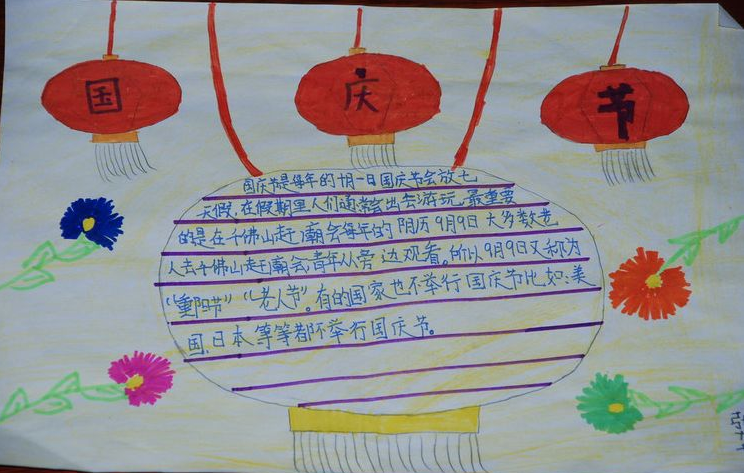 国庆节
国庆节是每年的十月一日国庆节会放七
天假,在假期里人们通常会出去游玩,最重要
的是在千佛山赶庙会每年的阴历9月9日大多数老
人去千佛山赶庙会,青年从旁边观看。所以9月9日又称为
“重阳节”“老人节”。有的国家也不举行国庆节比如:美
国、日本等等都不举行国庆节。